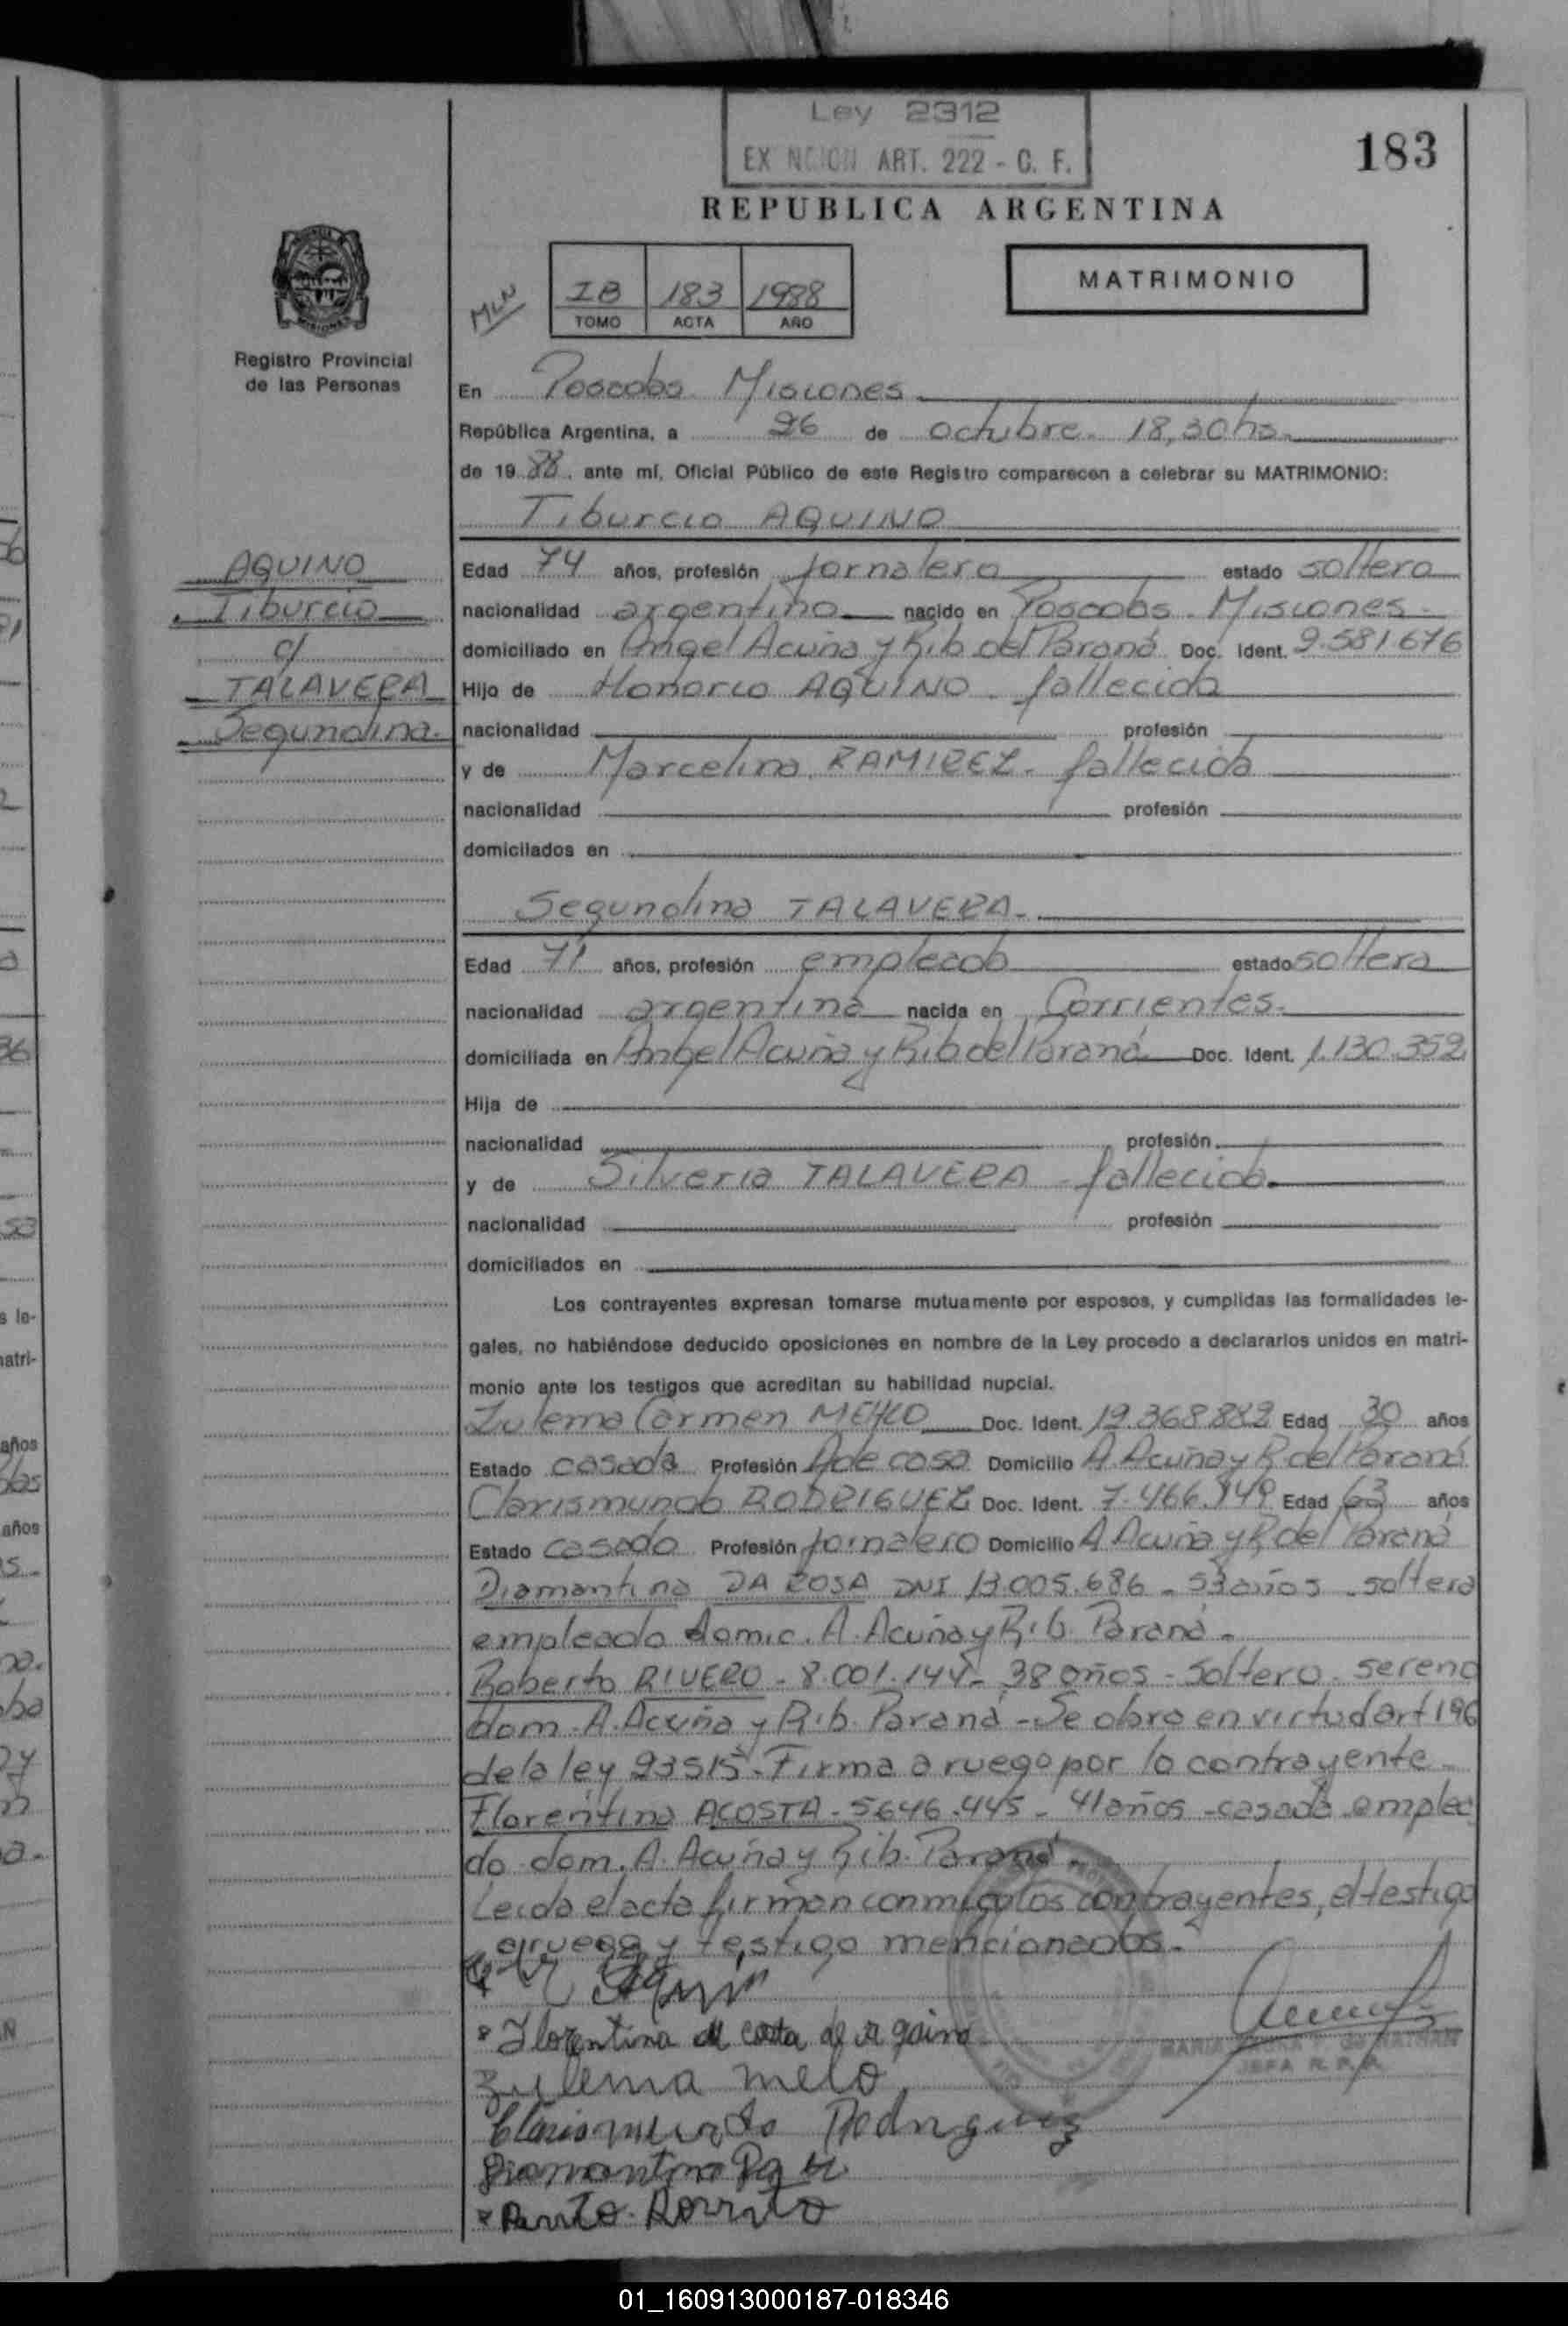 Ley 2312
EX NCION ART. 222 - C. F.
183
REPUBLICA ARGENTINA
MATRIMONIO
MLN
IB 183 1988
TOMO ACTA AÑO
Registro Provincial
de las Personas
En Posadas Misiones
República Argentina, a 26 de octubre. 18,30 hs.
de 19 88, ante mí, Oficial Público de este Registro comparecen a celebrar su MATRIMONIO:
Tiburcio AQUINO
AQUINO
Tiburcio
c/
TALAVERA
Segundina.
Edad 74 años, profesión jornalero estado soltero
nacionalidad argentino nacido en Posadas - Misiones -
domiciliado en Angel Acuña y Rib del Paraná Doc. Ident. 9.581.676
Hijo de Honorio AQUINO - fallecido
nacionalidad profesión
y de Marcelina RAMIREZ - fallecida
nacionalidad profesión
domiciliados en
Segundina TALAVERA -
Edad 71 años, profesión empleada estado soltera
nacionalidad argentina nacida en Corrientes.
domiciliada en Angel Acuña y Rib del Paraná Doc. Ident. 1.130.352
Hija de
nacionalidad profesión
y de Silveria TALAVERA - fallecida.
nacionalidad profesión
domiciliados en
Los contrayentes expresan tomarse mutuamente por esposos, y cumplidas las formalidades le-
gales, no habiéndose deducido oposiciones en nombre de la Ley procedo a declararlos unidos en matri-
monio ante los testigos que acreditan su habilidad nupcial.
Zulema Carmen Doc. Ident. 19.368.882 Edad 30 años
Estado casada Profesión A de casa Domicilio A. Acuña y R. del Paraná
Clarismundo RODRIGUEZ Doc. Ident. 7.466.149 Edad 63 años
Estado casado Profesión jornalero Domicilio A Acuña y R, del Paraná
Diamantina DA ROSA DNI 13.005.686 - 53 años - soltera
empleada domic. A. Acuña y Rib. Paraná -
Roberto RIVERO - 8.001.144 - 38 años - soltero - sereno
dom. A. Acuña y Rib. Paraná - Se obra en virtud art 196
de la ley 23515 - Firma a ruego por la contrayente -
Florentina ACOSTA - 5.646.445 - 41 años - casada - emplea
da dom. A. Acuña y Rib. Paraná -
Leida el acta firman conmigo los contrayentes, el testigo
a ruego y testigo mencionados.-
Florentina A costa de a quino
MARIA
JEFA R. P. P.
Zulema melo
Clarismundo Rodriguez
Diamantina
01_160913000187-018346